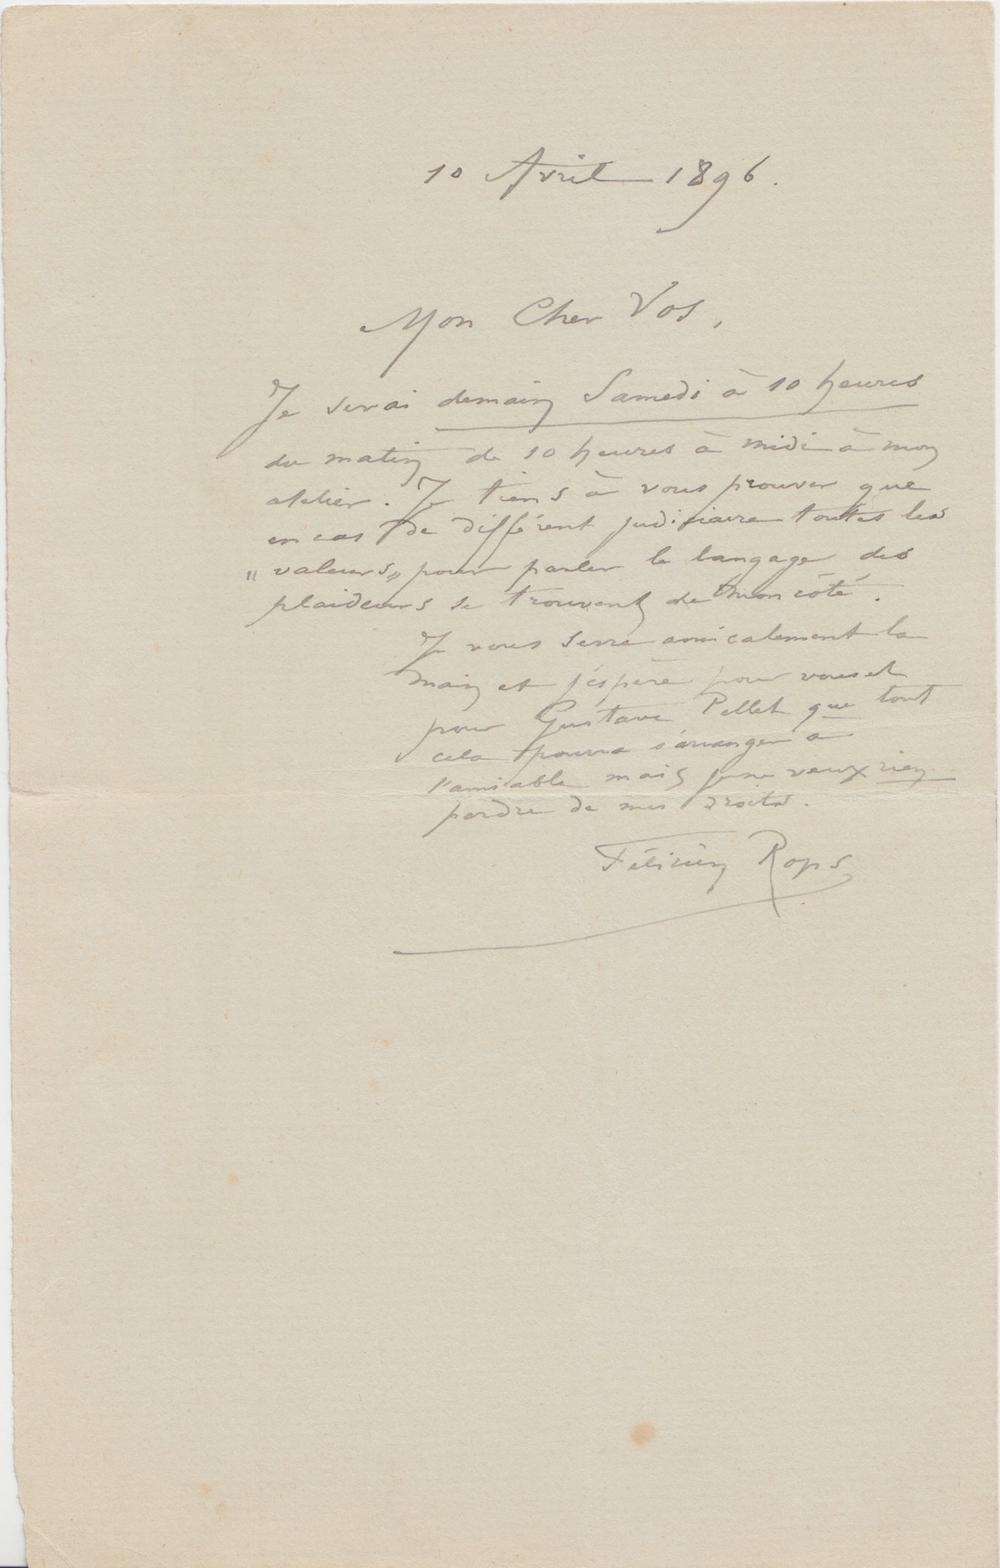 10 Avril 1896.
Mon Cher Vos,
Je serai demain Samedi à 10 heures
du matin de 10 heures à midi à mon
atelier. Je tiens à vous prouver que
en cas de différent judiciaire toutes les
"valeurs" pour parler le langage des
plaideurs se trouvent de mon côté.
Je vous serre amicalement la
main et j'éspère pour vous et
pour Gustave Pellet que tout
cela pourra s'arranger a
l'amiable mais je ne veux rien
perdre de mes droits.
Félicien Rops